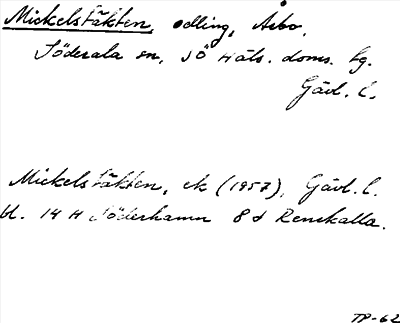 Mickelstäkten, odling, Arbo.
Söderala sn, SÖ Häls. doms. tg.
Gävl. l.
Mickelstäkten, ek (1957), Gävl. l.
bl. 14 H Söderhamn 8 d Renskalla.
TP-62